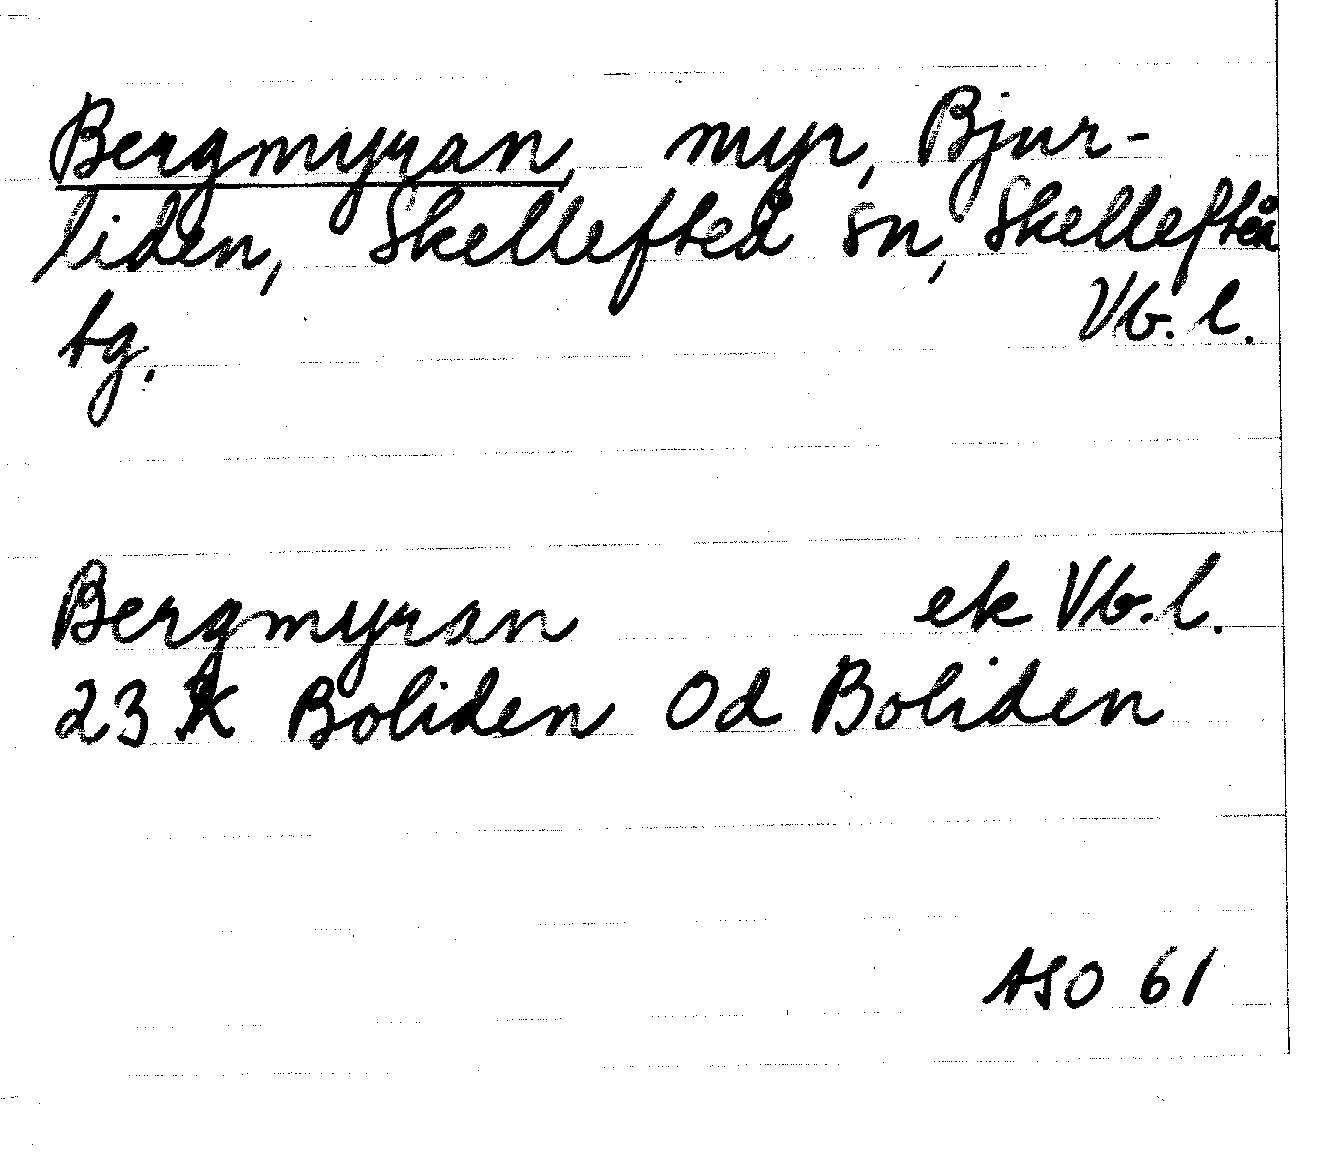 Bergmyran, myr, Bjur-
liden, Skellefteå sn, Skellefteå
tg. Vb. l.
Bergmyran ek Vb. l.
23 K Boliden Od Boliden
ASO 61